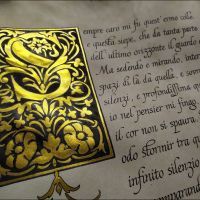 Sempre caro mi fu quest' ermo colle
e questa siepe, che da tanta parte
dell' ultimo orizzonte il guardo
Ma sedendo e mirando, inter
spazi di là da quella, e sovr
silenzi, e profondissima qu
io nel pensier mi fingo
il cor non si spaura.
odo stormir tra qu
infinito silenzio
comparando